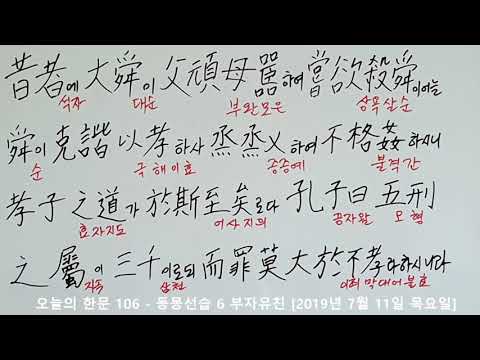 昔者에 大舜이 父頑母嚚하여 嘗欲殺舜이어늘
석자 대순 부완모은 상욕살순
舜이 克諧以孝하사 烝烝乂하여 不格姦하시니
순 극해이효 증증예 불격간
孝子之道가 於斯至矣로다 孔子曰 五刑
효자지도 어사지의 공자왈 오형
之屬이 三千이로되 而罪莫大於不孝라하시니라
지속 삼천 이죄막대어불효
오늘의 한문 106 - 동몽선습 6 부자유친 [2019년 7월 11일 목요일]